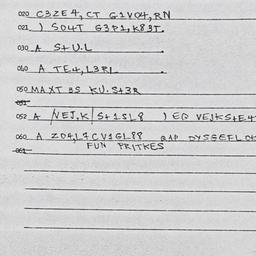 020 C3ZE 4, CT G1V04, RN
021 ) SO4T G3P1, K89T.
030 A S+U.L
040 A TE4, L3RL
050 MAXT 3S KU. S+3R
052 A NEJ.K S+1SL8 ) EQ VEJKS+E4
060 A ZO4L7CV1GL88 QAP DYSGEFL
FUN PRITKES